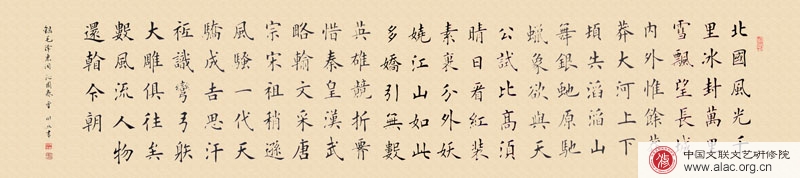 北國風光千
里冰封萬里
雪飄望長城
內外惟餘莽
莽大河上下
頓失滔滔山
舞銀蛇原馳
蠟象欲與天
公試比高須
晴日看紅裝
素裹分外妖
嬈江山如此
多嬌引無數
英雄競折腰
惜秦皇漢武
略輸文采唐
宗宋祖稍遜
風騷一代天
驕成吉思汗
祗識彎弓射
大雕俱往矣
數風流人物
還看今朝
錄毛澤東詞沁園春雪
中国文联文艺研修院
www.alac.org.cn